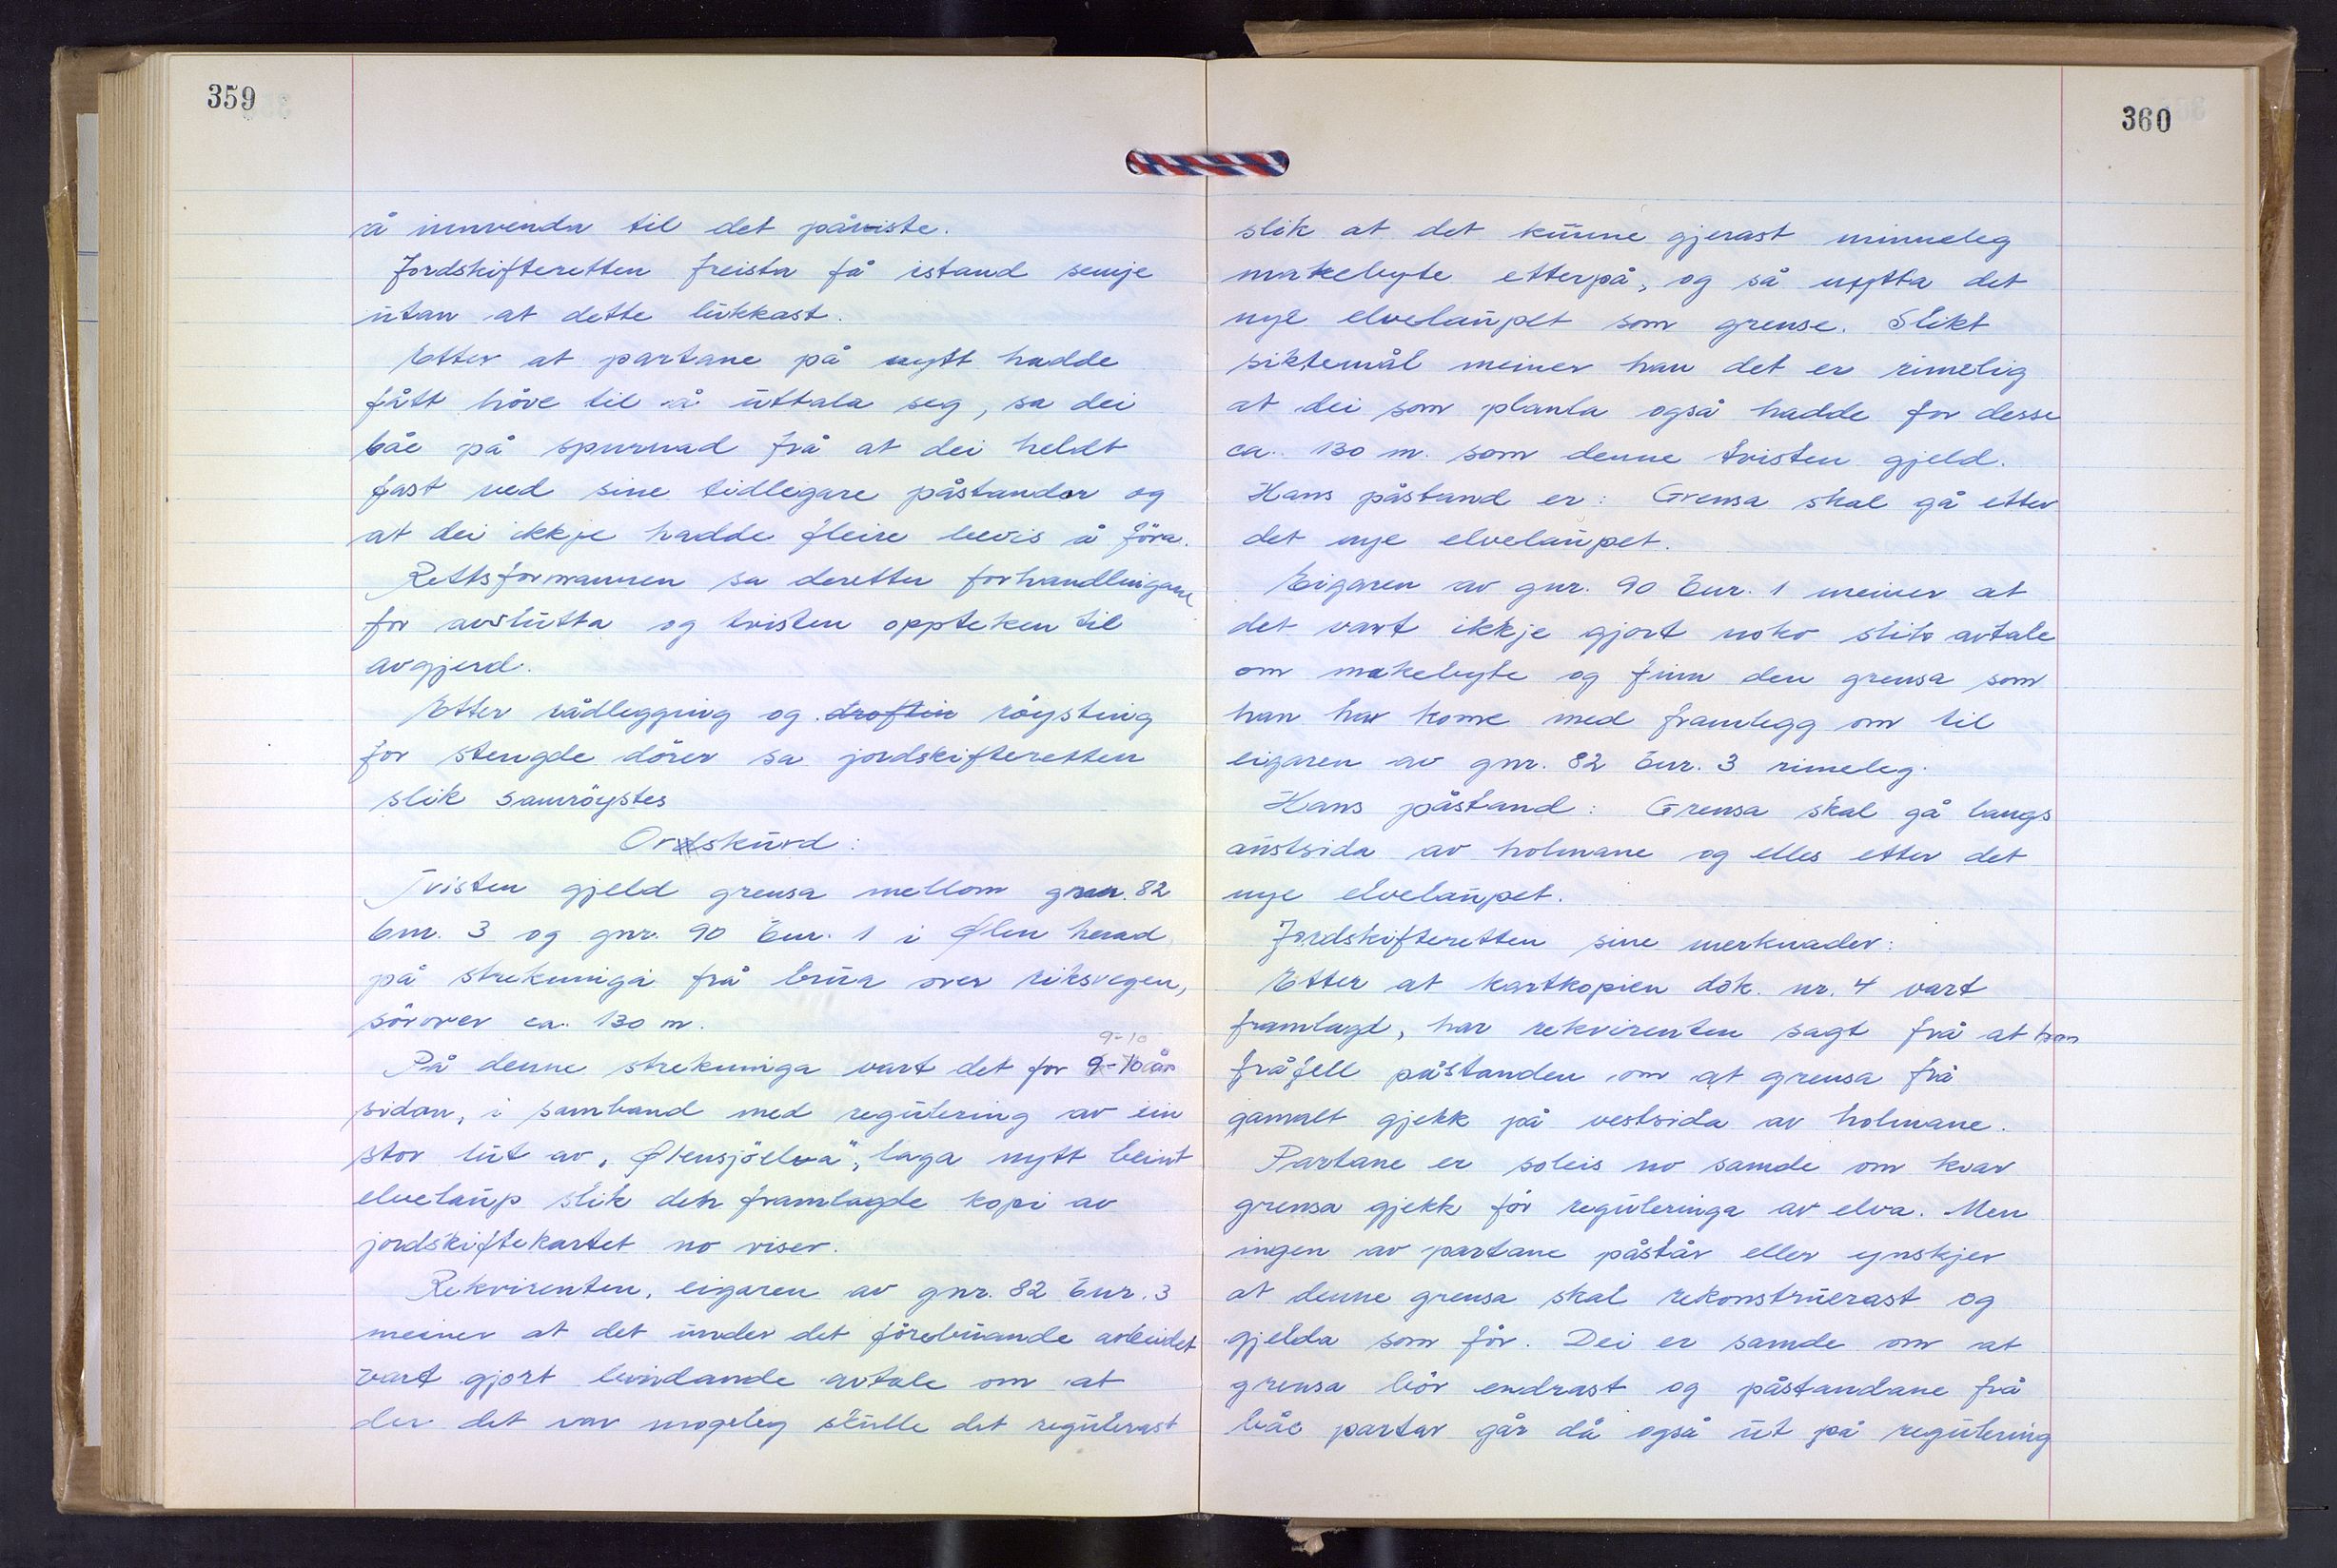 359
å innvenda til det påviste.
Jordskifteretten freista få istand semje
utan at dette lukkast.
Etter at partane på nytt hadde
fått höve til å uttala seg, sa dei
båe på spurnad frå at dei heldt
fast ved sine tidlegare påstandar og
at dei ikkje hadde fleire bevis å föra.
Rettsformannen sa deretter forhandlingane
for avslutta og tvisten oppteken til
avgjerd.
Etter rådlegging og droftin röysting
for stengde dörer sa jordskifteretten
slik samröystes
Orskurd:
Tvisten gjeld grensa mellom gnr. 82
bnr. 3 og gnr. 90 bnr. 1 i Ølen herad
på strekninga frå brua over riksvegen,
sörover ca. 130 m.
9-10
På denne strekninga vart det for 9-10 år
sidan, i samband med regulering av ein
stor lut av „Ølensjöelva", laga nytt beint
elvelaup slik den framlagde kopi av
jordskiftekartet no viser.
Rekvirenten, eigaren av gnr. 82 bnr. 3
meiner at det under det förebuande arbeidet
vart gjort bindande avtale om at
der det var mogeleg skulle det regulerast
360
slik at det kunne gjerast minneleg
makebyte etterpå, og så nytta det
nye elvelaupet som grense. Slikt
siktemål meiner han det er rimelig
at dei som planla også hadde for desse
ca. 130 m. som denne tvisten gjeld.
Hans påstand er: Grensa skal gå etter
det nye elvelaupet.
Eigaren av gnr. 90 bnr. 1 meiner at
det vart ikkje gjort noko slik avtale
om makebyte og finn den grensa som
han har kome med framlegg om til
eigaren av gnr. 82 bnr. 3 rimeleg.
Hans påstand: Grensa skal gå langs
austsida av holmane og elles etter det
nye elvelaupet.
Jordskifteretten sine merknader:
Etter at kartkopien dok. nr. 4 vart
framlagt, har rekvirenten sagt frå at han
fråfell påstanden om at grensa frå
gamalt gjekk på vestsida av holmane.
Partane er soleis no samde om kvar
grensa gjekk för reguleringa av elva. Men
ingen av partane påstår eller ynskjer
at denne grensa skal rekonstruerast og
gjelda som för. Dei er samde om at
grensa bör endrast og påstandane frå
båe partar går då også ut på regulering